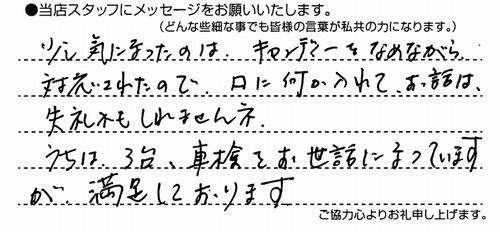 ●当店スタッフにメッセージをお願いいたします。
（どんな些細な事でも皆様の言葉が私共の力になります。）
少し気になったのは、キャンディーをなめながら
対応されたので、口に何か入れて、お話は、
失礼かもしれませんネ.
うちは、3台、車検をお世話になっています
が、満足しております
ご協力心よりお礼申し上げます。